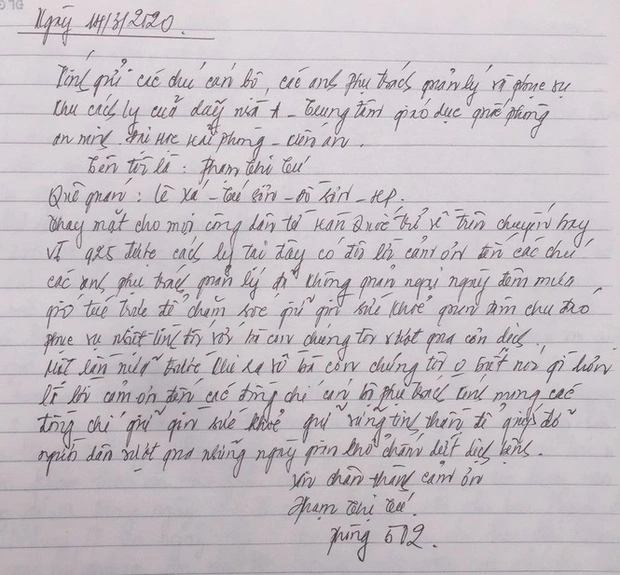 Ngày 14/3/2020.
Kính gửi các chú cán bộ, các anh phụ trách quản lý và phục vụ
khu cách ly của dãy nhà A - Trung tâm giáo dục quốc phòng
an ninh. Đại học Hải Phòng - Kiến An.
Tên tôi là: Phạm Thị Tú
Quê quán: Lê Xá - Tú Sơn - Đồ Sơn - HP.
Thay mặt cho mọi công dân từ Hàn Quốc trở về trên chuyến bay
VJ 925 được cách ly tại đây có đôi lời cảm ơn đến các chú
các anh phụ trách quản lý đã không quản ngại ngày đêm mưa
gió túc trực để chăm sóc giữ gìn sức khoẻ quan tâm chu đáo
phục vụ nhiệt tình đối với bà con chúng tôi vượt qua cơn dịch.
Một lần nữa trước khi xa về bà con chúng tôi 0 biết nói gì hơn
là lời cảm ơn đến các đồng chí cán bộ phụ trách kính mong các
đồng chí giữ gìn sức khoẻ giữ vững tinh thần để giúp đỡ
người dân vượt qua những ngày gian khó chấm dứt dịch bệnh.
Xin chân thành cảm ơn
Phạm Thị Tú.
Phòng 502.